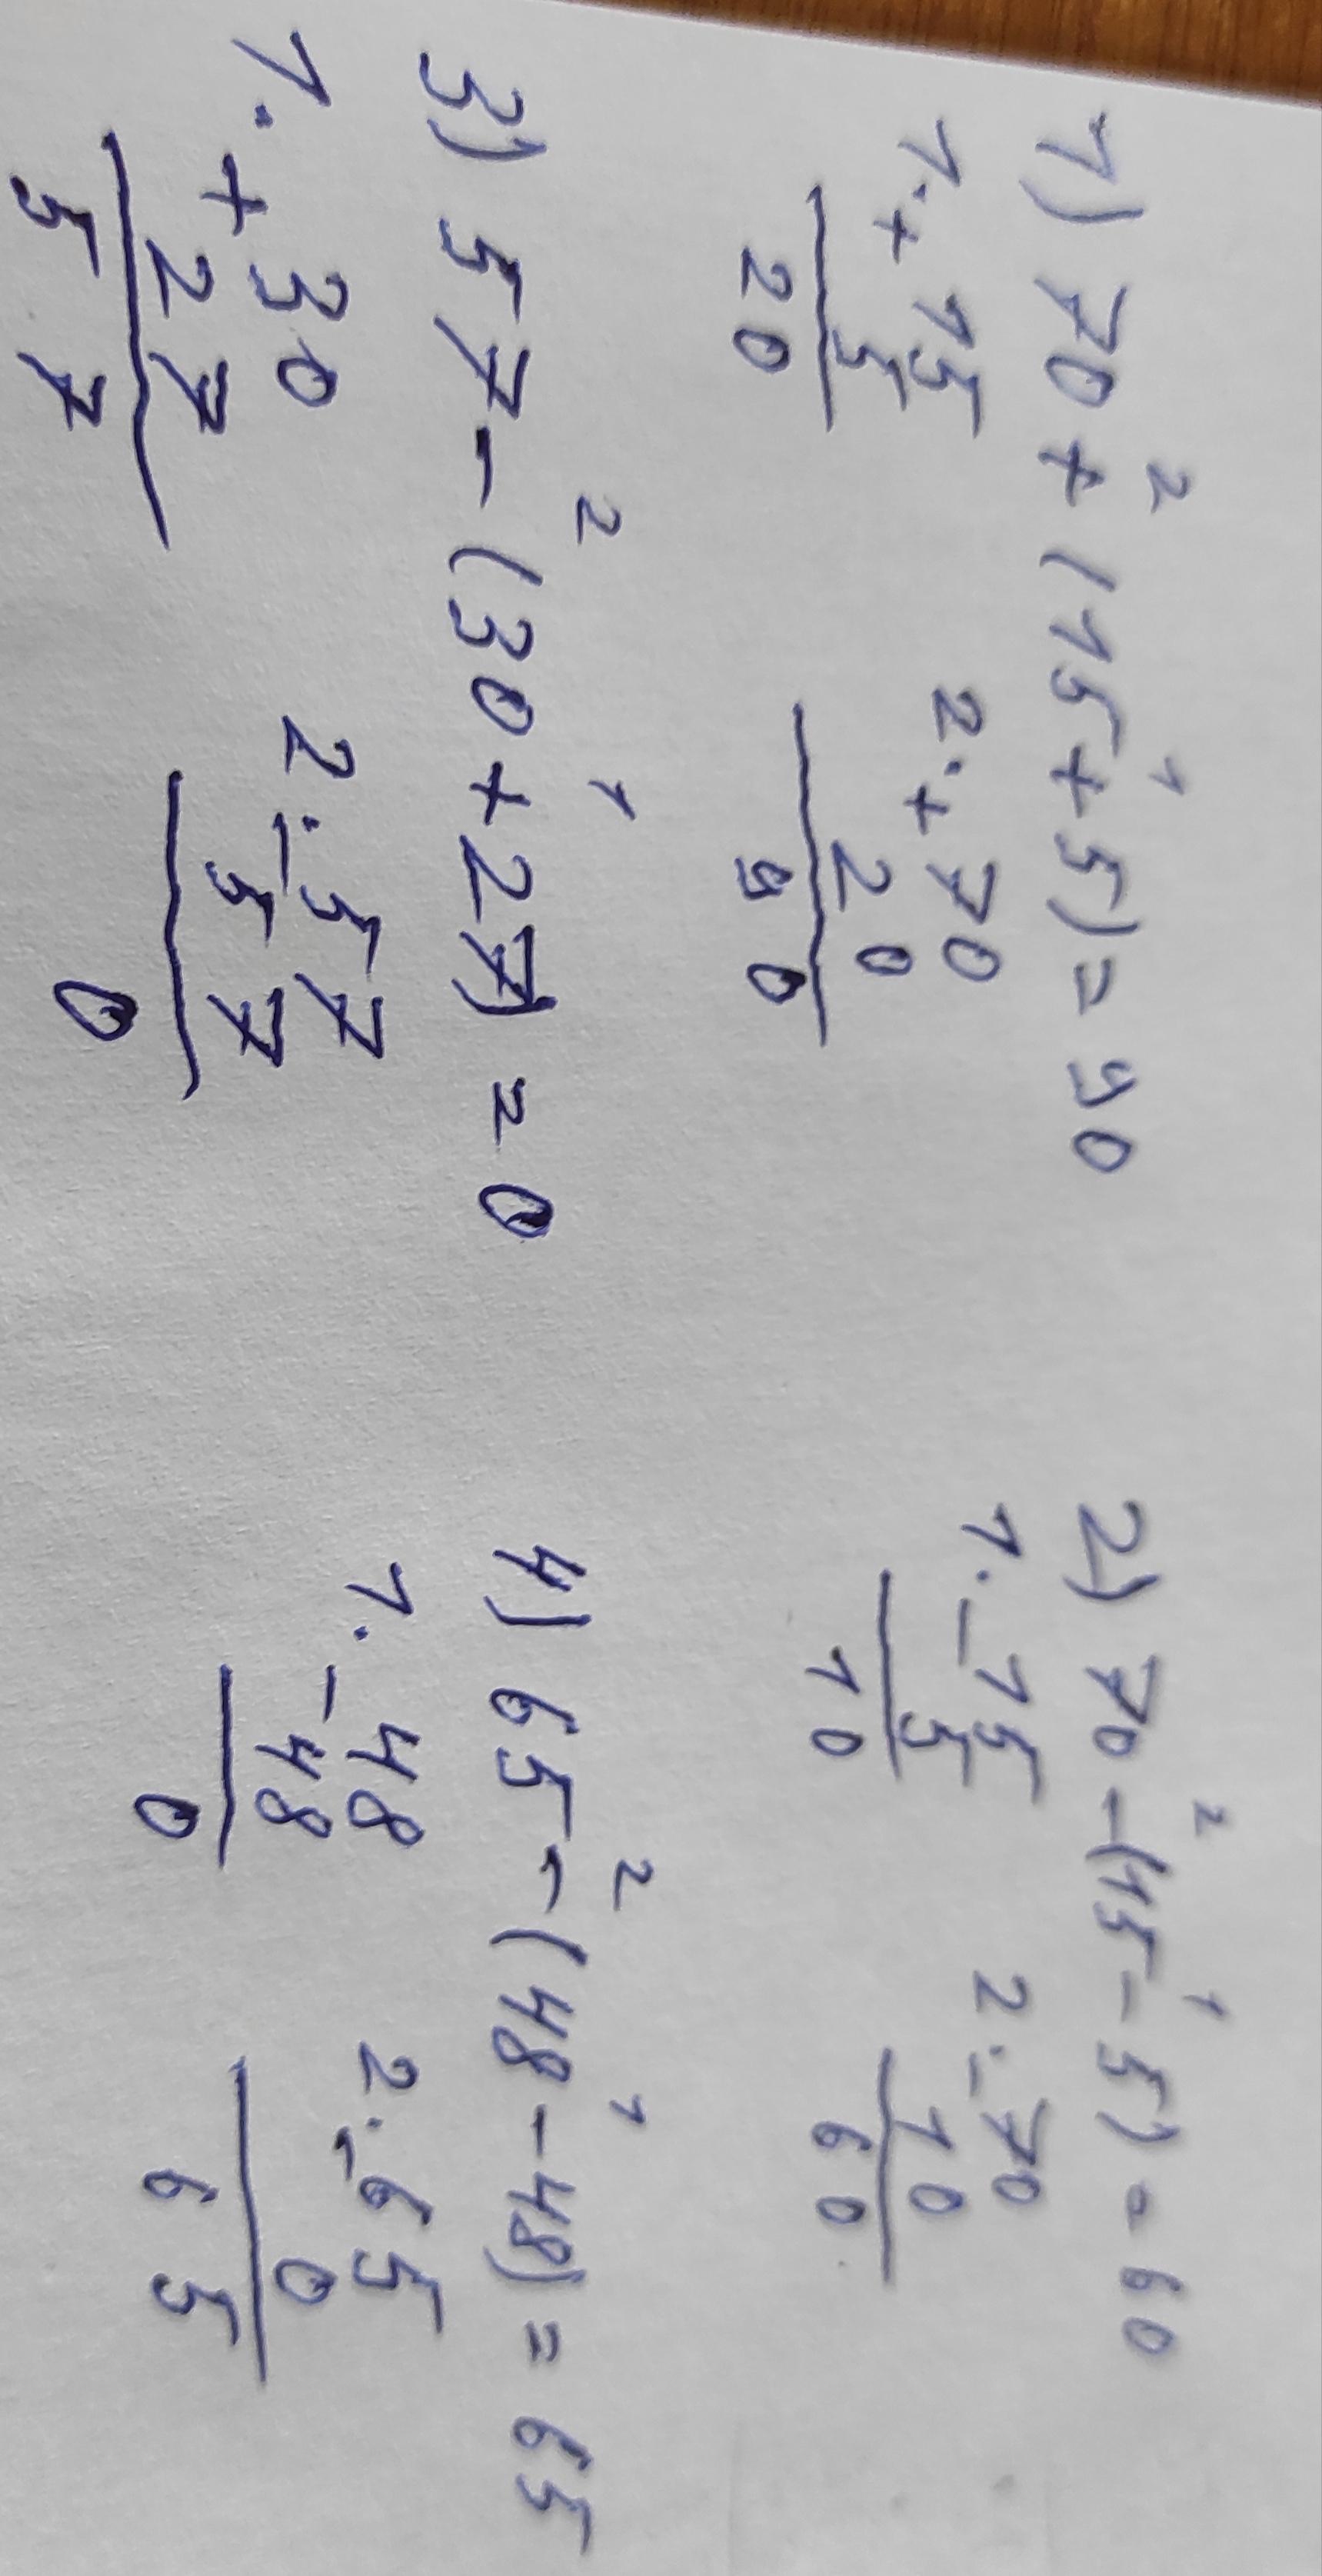 2 1
1) 70 + (15 + 5) = 90
1. + 15
5
20
2. + 70
20
90
2 1
2) 70 - (15 - 5) = 60
1. - 15
5
10
2. - 70
10
60
2 1
3) 57 - (30 + 27) = 0
1. + 30
27
57
2. - 57
57
0
2 1
4) 65 - (48 - 48) = 65
1. - 48
48
0
2. - 65
0
65